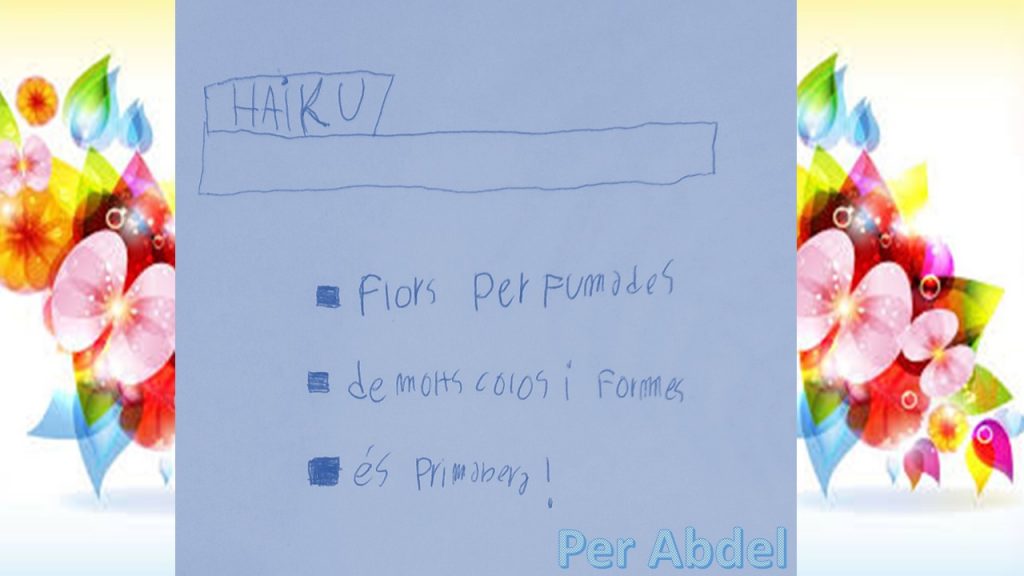 HAiKU
Flors Perfumades
de molts colos i Formmes
és Primabera!
Per Abdel